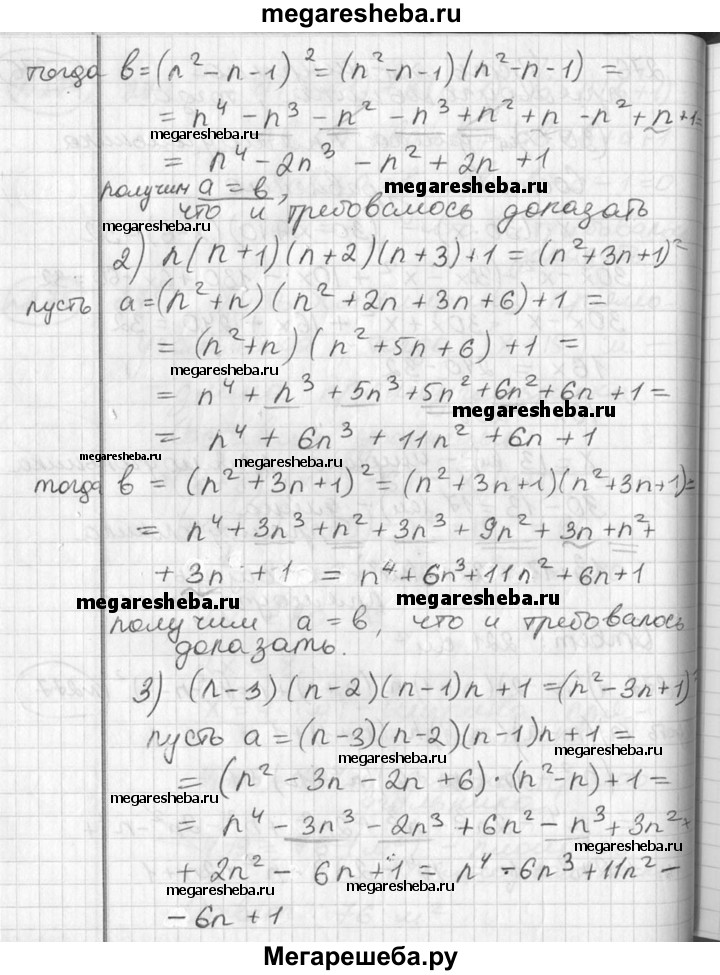 megaresheba.ru
тогда в=(n²-n-1)²=(n²-n-1)(n²-n-1)=
= n⁴-n³-n²-n³+n²+n-n²+n+1=
megaresheba.ru
megaresheba.ru
= n⁴-2n³-n²+2n+1
получим a=в,
megaresheba.ru
что и требовалось доказать
megaresheba.ru
2) n(n+1)(n+2)(n+3)+1=(n²+3n+1)²
megaresheba.ru
пусть a=(n²+n)(n²+2n+3n+6)+1=
megaresheba.ru
= (n²+n)(n²+5n+6)+1=
megaresheba.ru
= n⁴+n³+5n³+5n²+6n²+6n+1=
megaresheba.ru
= n⁴+6n³+11n²+6n+1
megaresheba.ru
megaresheba.ru
тогда в=(n²+3n+1)²=(n²+3n+1)(n²+3n+1)=
megaresheba.ru
= n⁴+3n³+n²+3n³+9n²+3n+n²+
+3n+1=n⁴+6n³+11n²+6n+1
megaresheba.ru
megaresheba.ru
получим a=в, что и требовалось
доказать.
3) (n-3)(n-2)(n-1)n+1=(n²-3n+1)²
пусть a=(n-3)(n-2)(n-1)n+1=
megaresheba.ru
megaresheba.ru
= (n²-3n-2n+6)·(n²-n)+1=
megaresheba.ru
= n⁴-3n³-2n³+6n²-n³+3n²+
megaresheba.ru
+2n²-6n+1=n⁴-6n³+11n²-
megaresheba.ru
megaresheba.ru
-6n+1
Мегарешеба.ру